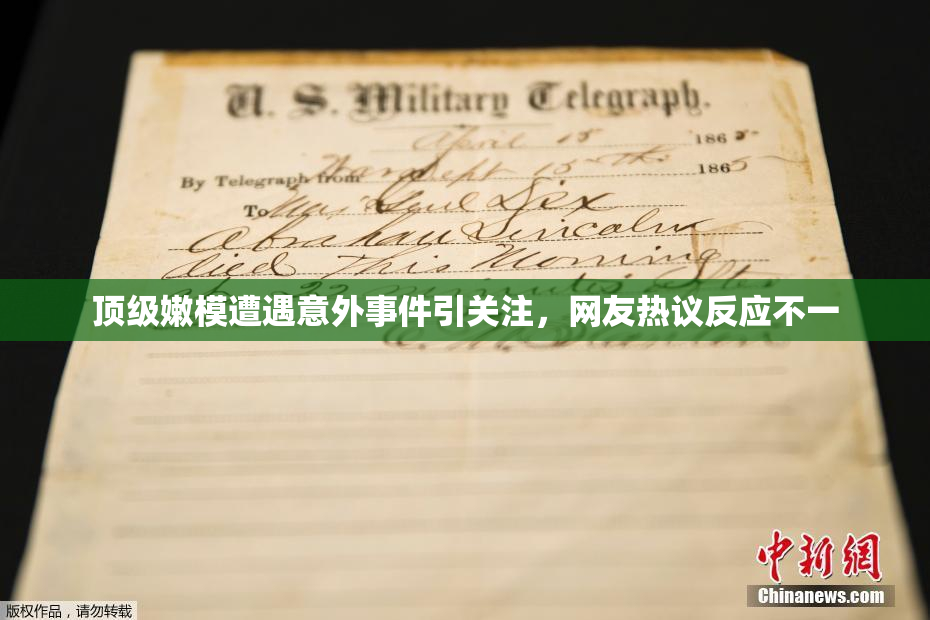 U. S. Military Telegraph.
April 15 1865
By Telegraph from War Dept 15th 1865
To Maj Genl Dix
Abraham Lincoln
died This Morning
22 minutes after
顶级嫩模遭遇意外事件引关注，网友热议反应不一
中新网
Chinanews.com
版权作品，请勿转载